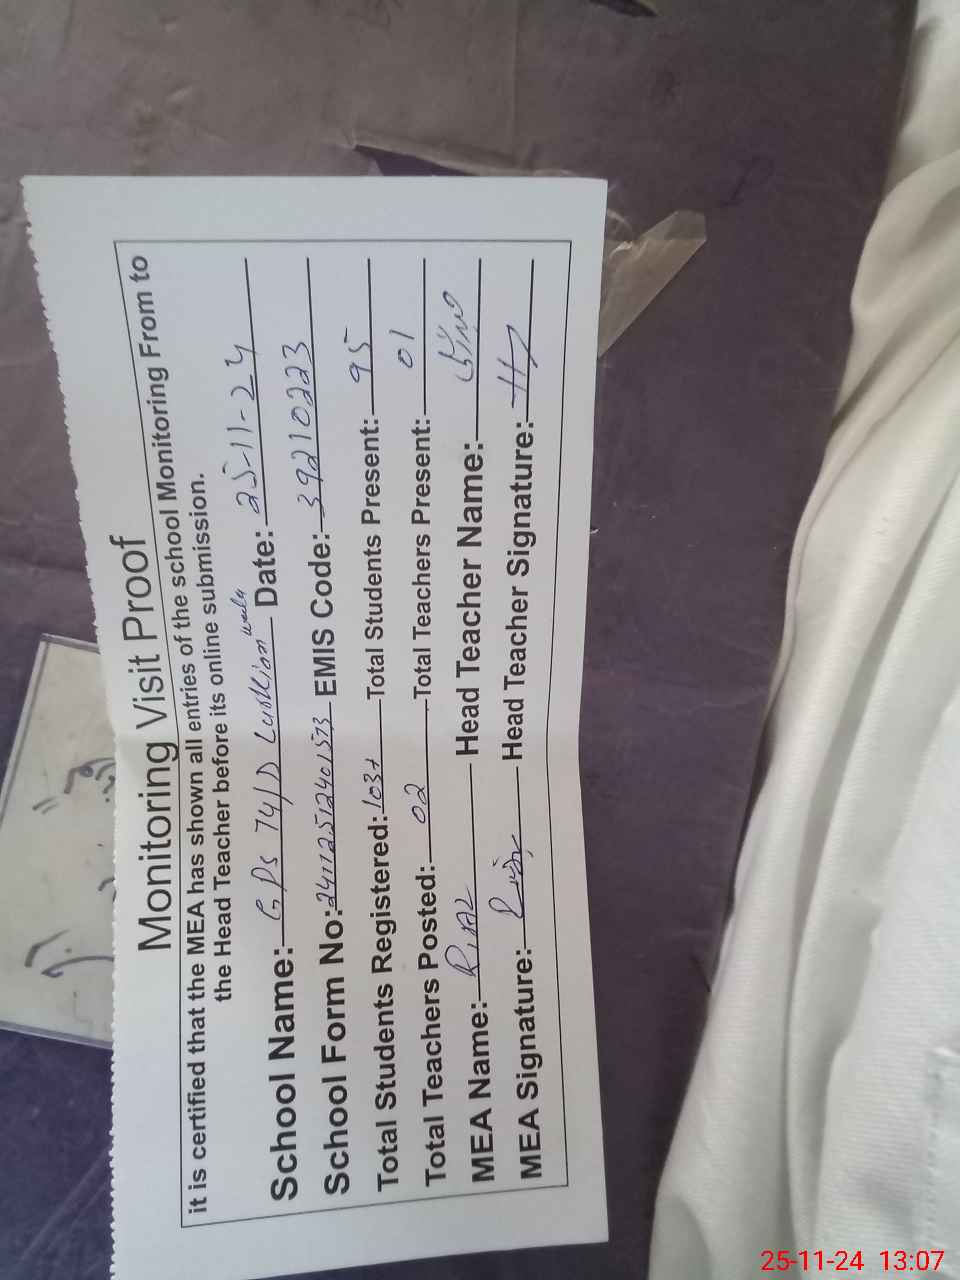 Monitoring Visit Proof
it is certified that the MEA has shown all entries of the school Monitoring From to
the Head Teacher before its online submission.
School Name: G,Ps 74/D Date: 25-11-24
School Form No: 24112512401573 EMIS Code: 39210223
Total Students Registered: 103+ Total Students Present: 95
Total Teachers Posted: 02 Total Teachers Present: 01
MEA Name: Head Teacher Name:
MEA Signature: Head Teacher Signature:
25-11-24 13:07